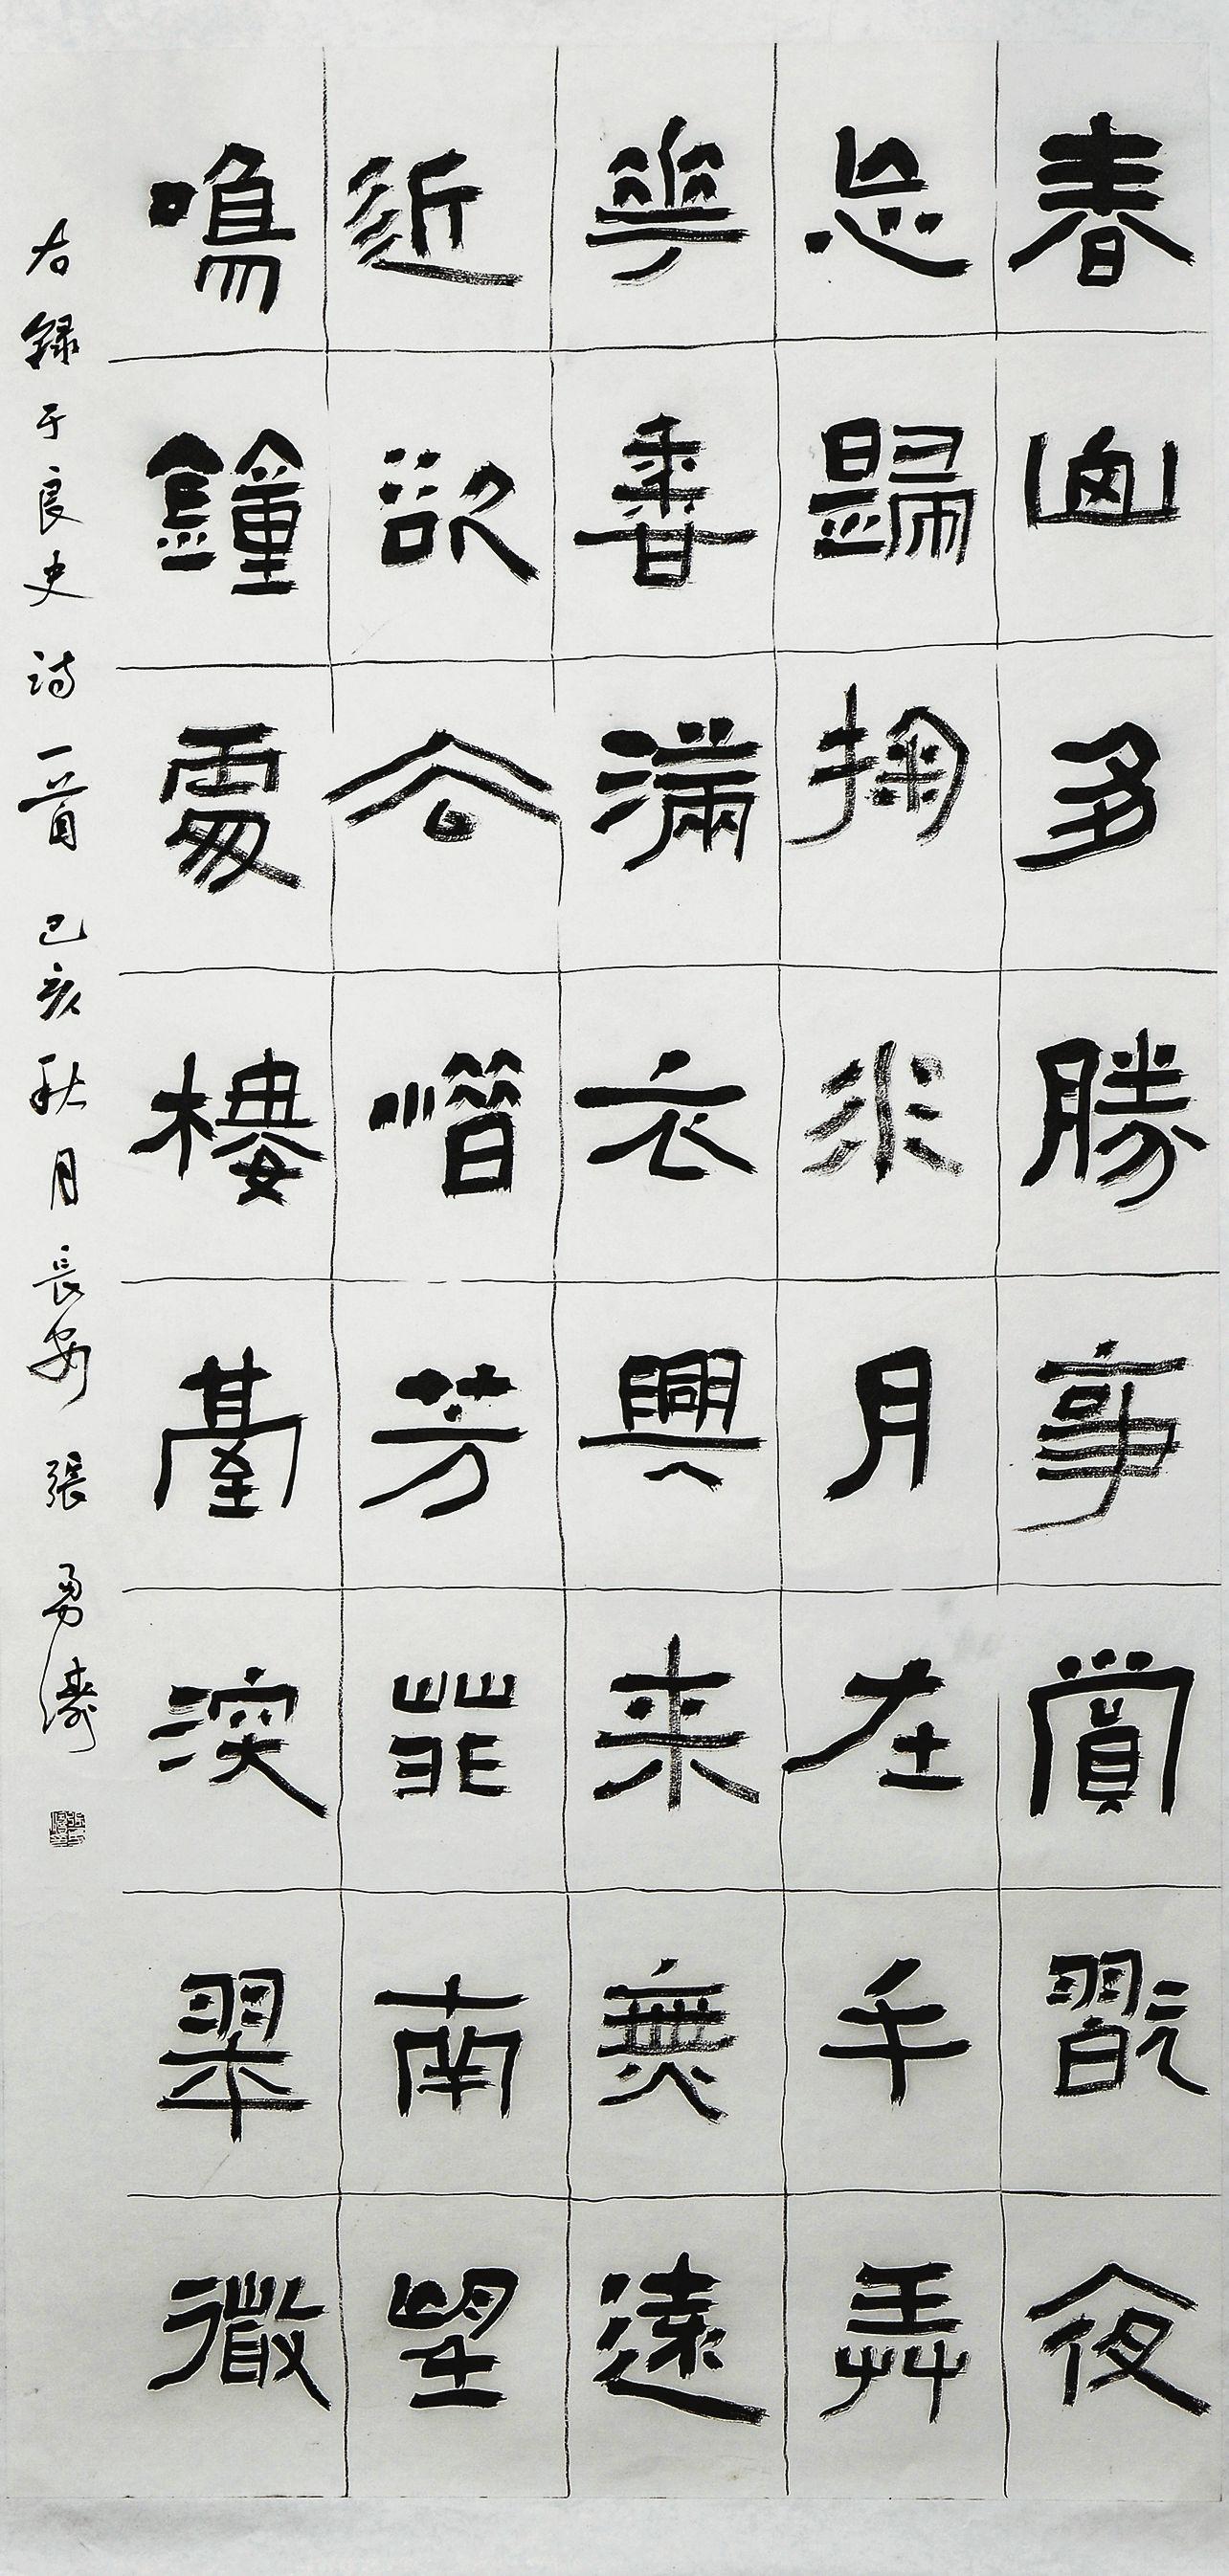 春山多勝事賞翫夜
忘歸掬水月在手弄
華香滿衣興来無遠
近欲去惜芳菲南望
鳴鐘處樓臺深翠微
右録于良史詩一首己亥秋月長安張勇濤